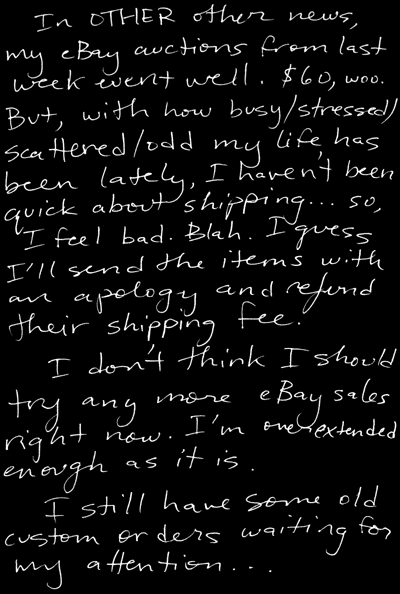 In OTHER other news,
my eBay auctions from last
week went well. $60, woo.
But, with how busy/stressed/
scattered/odd my life has
been lately, I haven't been
quick about shipping... so,
I feel bad. Blah. I guess
I'll send the items with
an apology and refund
their shipping fee.
I don't think I should
try any more eBay sales
right now. I'm overextended
enough as it is.
I still have some old
custom orders waiting for
my attention...